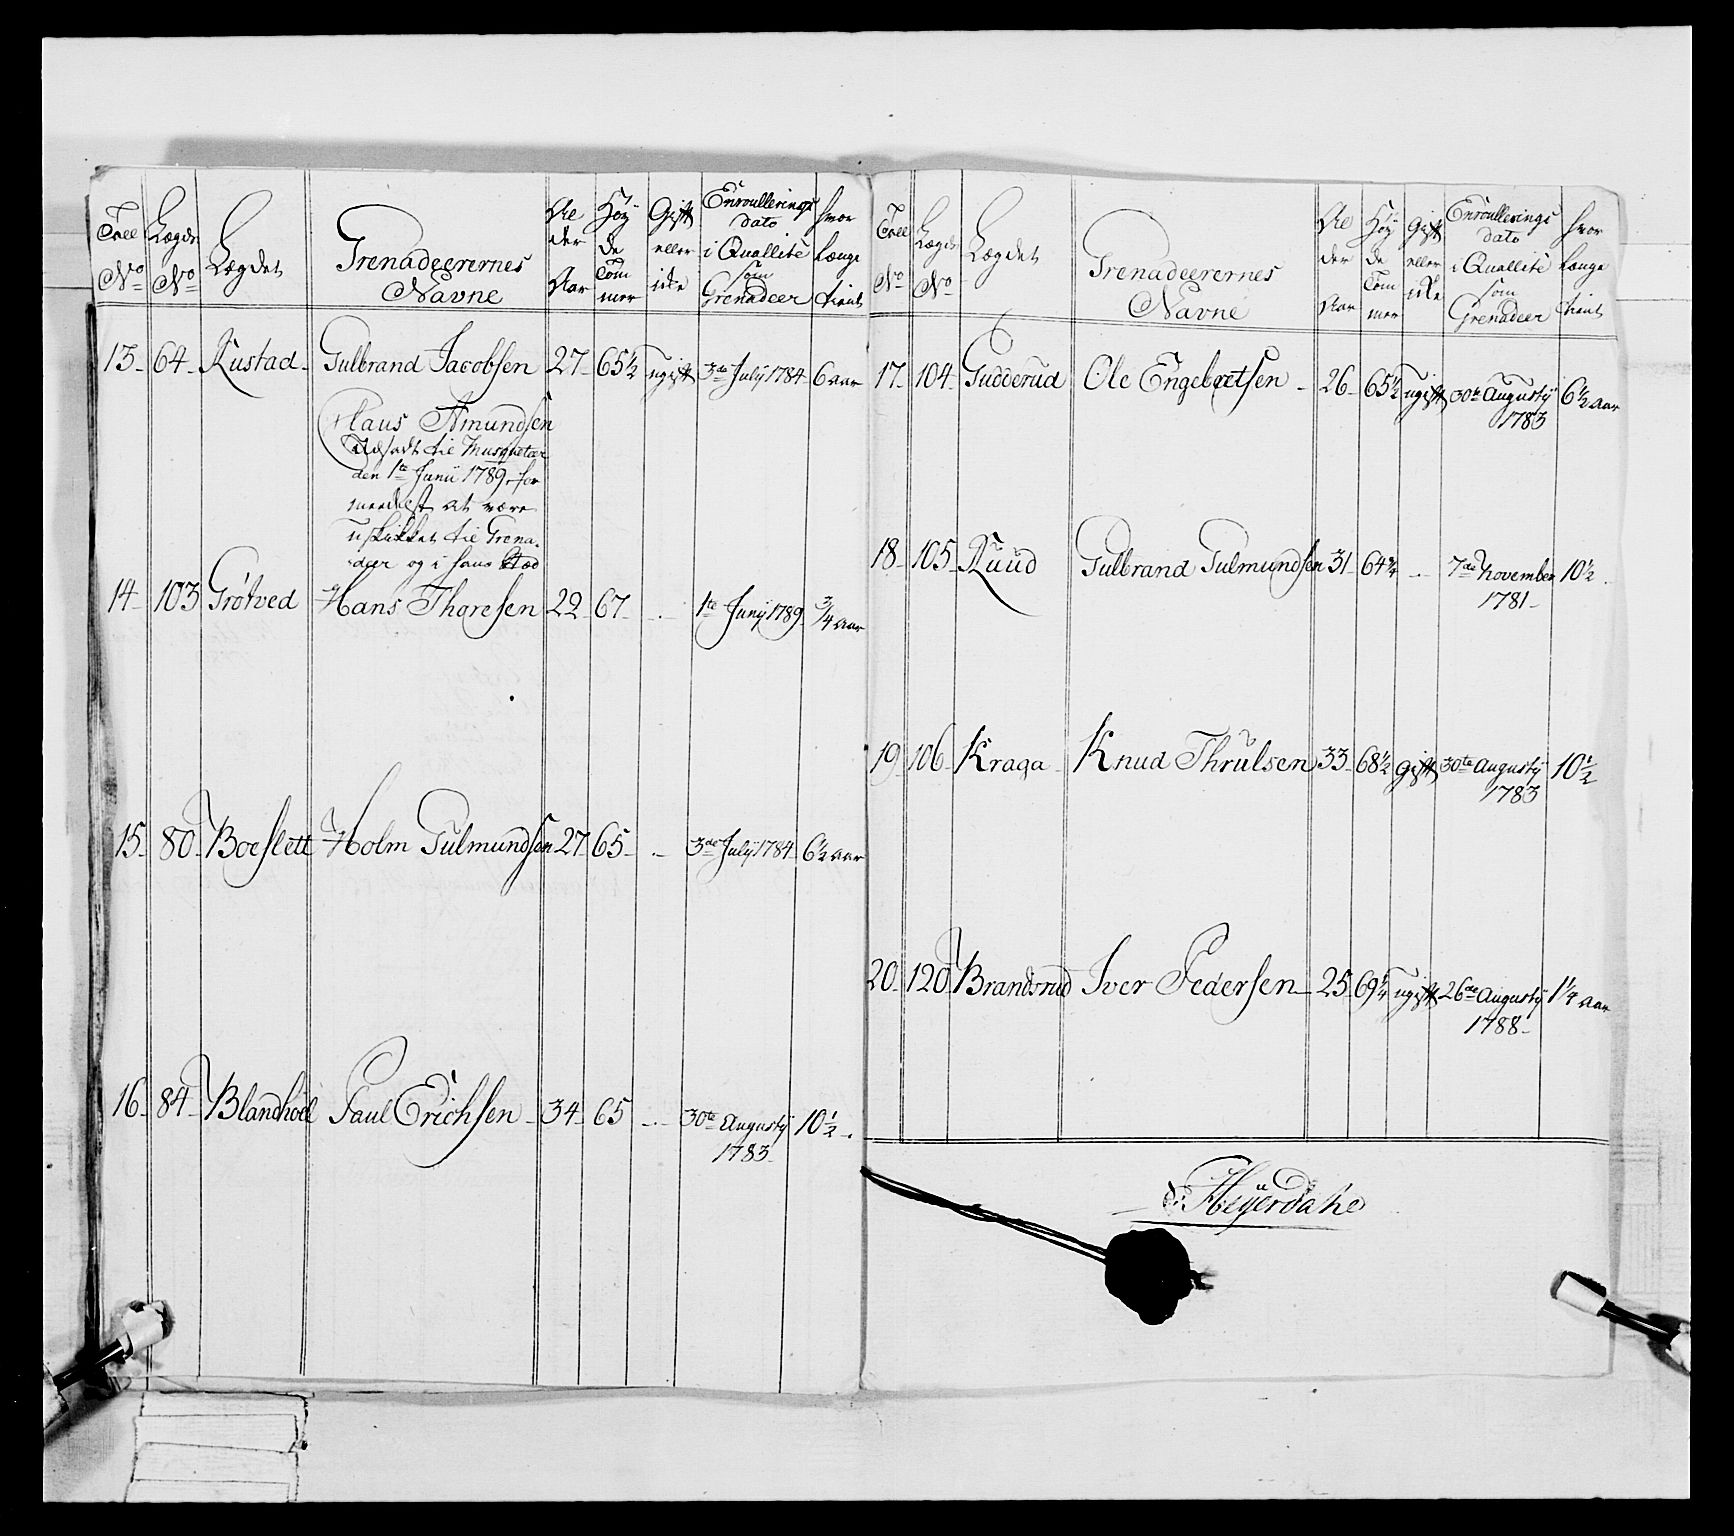 Tall No Lægds No Lægdet Grenadeerernes Navne Alder Aar Høyde Tommer Gift eller ikke Enroullerings dato i Quallite som Grenadeer hvor længe tient
13 64 Rustad Gulbrand Jacobsen 27 65½ ugift 3de July 1784 6 aar
Claus Amundsen
Udsadt til Musqueteer
den 1te Junii 1789, for
meedelst at være
uskikket til Grena-
deer og i hans Stæd
14 103 Grøtved Hans Thoresen 22 67 1te Junij 1789 3/4 aar
15 80 Boeslett Holm Gulmundsen 27 65 3de July 1784 6½ aar
16 84 Blandhoel Paul Erichsen 34 65 30te Augusty 10½
1783
Tall No Lægds No Lægdet Grenadeerernes Navne Alder Aar Høyde Tommer Gift eller ikke Enroullerings dato i Quallite som Grenadeer hvor længe tient
17 104 Gudderud Ole Engebretsen 26 65½ ugift 30te Augusty 6½ aar
1783
18 105 Ruud Gulbrand Gulmundsen 31 64¾ 7de November 10½
1781
19 106 Kraga Knud Thrulsen 33 68½ Gift 30te Augusty 10½
1783
20 120 Brandsrud Iver Pedersen 25 69¼ ugift 26de Augusty 1¼ aar
1788
Heyerdahl